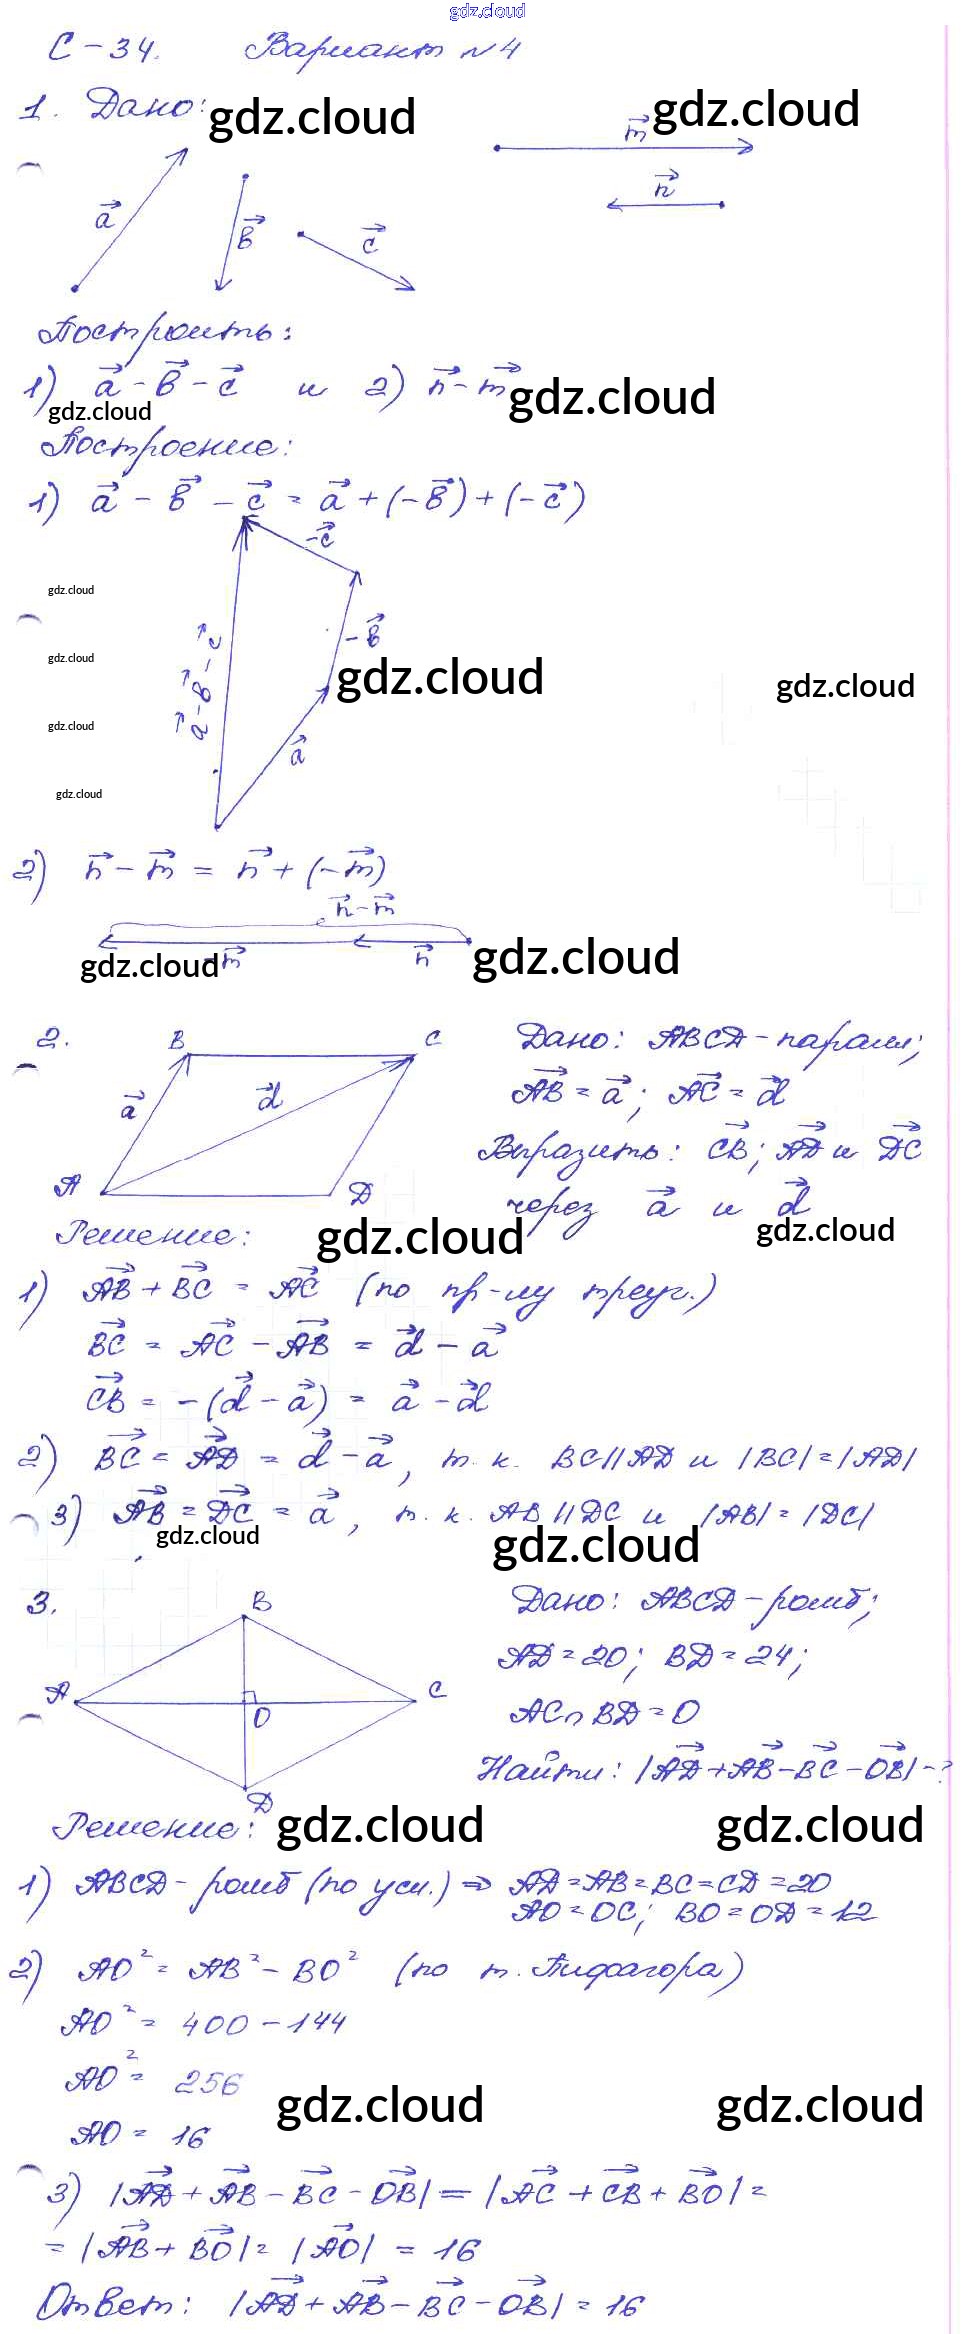 gdz.cloud
С-34. Вариант №4
1. Дано:
gdz.cloud
gdz.cloud
m⃗
n⃗
a⃗
b⃗
c⃗
Построить:
1) a⃗ - b⃗ - c⃗ и 2) n⃗ - m⃗
gdz.cloud
gdz.cloud
Построение:
1) a⃗ - b⃗ - c⃗ = a⃗ + (-b⃗) + (-c⃗)
-c⃗
gdz.cloud
-b⃗
gdz.cloud
a⃗ - b⃗ - c⃗
gdz.cloud
gdz.cloud
gdz.cloud
a⃗
gdz.cloud
2) n⃗ - m⃗ = n⃗ + (-m⃗)
n⃗ - m⃗
-m⃗
n⃗
gdz.cloud
gdz.cloud
2.
B
C
a⃗
d⃗
A
D
Дано: ABCD - паралл;
AB⃗ = a⃗; AC⃗ = d⃗
Выразить: CB⃗; AD⃗ и DC⃗
через a⃗ и d⃗
gdz.cloud
gdz.cloud
Решение:
1) AB⃗ + BC⃗ = AC⃗ (по пр-лу треуг.)
BC⃗ = AC⃗ - AB⃗ = d⃗ - a⃗
CB⃗ = -(d⃗ - a⃗) = a⃗ - d⃗
2) BC⃗ = AD⃗ = d⃗ - a⃗, т.к. BC || AD и |BC| = |AD|
3) AB⃗ = DC⃗ = a⃗, т.к. AB || DC и |AB| = |DC|
gdz.cloud
gdz.cloud
3.
B
A
C
O
D
Дано: ABCD - ромб;
AD = 20; BD = 24;
AC ∩ BD = O
Найти: |AD⃗ + AB⃗ - BC⃗ - OB⃗| - ?
Решение:
gdz.cloud
gdz.cloud
1) ABCD - ромб (по усл.) ⇒ AD = AB = BC = CD = 20
AO = OC; BO = OD = 12
2) AO² = AB² - BO² (по т. Пифагора)
AO² = 400 - 144
AO² = 256
gdz.cloud
gdz.cloud
AO = 16
3) |AD⃗ + AB⃗ - BC⃗ - OB⃗| = |AC⃗ + CB⃗ + BO⃗| =
= |AB⃗ + BO⃗| = |AO⃗| = 16
Ответ: |AD⃗ + AB⃗ - BC⃗ - OB⃗| = 16